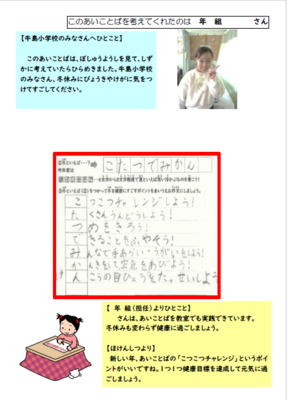 このあいことばを考えてくれたのは　年　組　　　さん
【牛島小学校のみなさんへひとこと】
このあいことばは、ぼしゅうようしを見て、しず
かに考えていたらひらめきました。牛島小学校
のみなさん、冬休みにびょうきやけがに気をつ
けてすごしてください。
こたつでみかん
こつこつチャレンジしよう!
たくさんうんどうしよう!
つめをきろう!
できることをふやそう!
みんなで手あらい・うがいをしよう!
かんきをして空気をあびよう!
んこうの目ひょうをた。せいしよう
【　年　組（担任）よりひとこと】
さんは、あいことばを教室でも実践できています。
冬休みも変わらず健康に過ごしましょう。
【ほけんしつより】
新しい年、あいことばの「こつこつチャレンジ」というポイ
ントがいいですね。1つ1つ健康目標を達成して元気に過
ごしましょう。